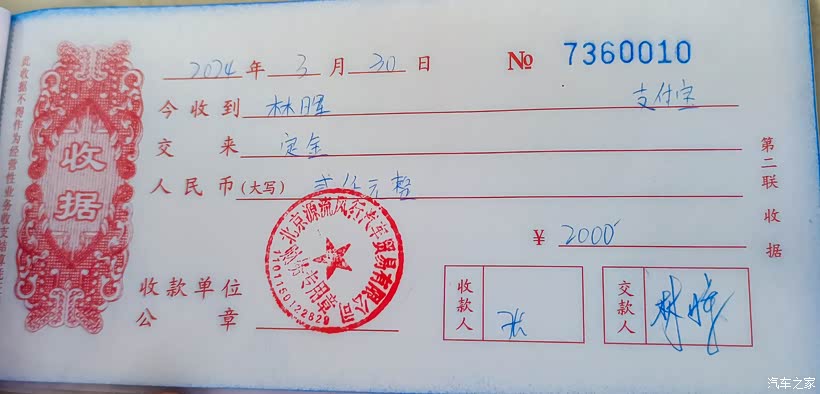 2024 年 3 月 30 日 № 7360010
今收到 林晖 支付宝
交来 定金
人民币(大写) 贰仟元整
¥ 2000
收款单位
公章
收款人
交款人
收据
此收据不得作为经营性业务收支结算凭
第二联 收据
北京源流风行汽车贸易有限公司
财务专用章
汽车之家